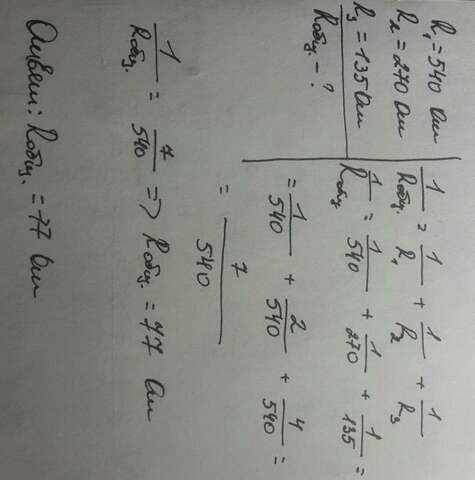 R₁ = 540 Ом
R₂ = 270 Ом
R₃ = 135 Ом
Rобщ. - ?
1/Rобщ. = 1/R₁ + 1/R₂ + 1/R₃
1/Rобщ = 1/540 + 1/270 + 1/135 =
= 1/540 + 2/540 + 4/540 =
= 7/540
1/Rобщ. = 7/540 => Rобщ. = 77 Ом
Ответ: Rобщ. = 77 Ом